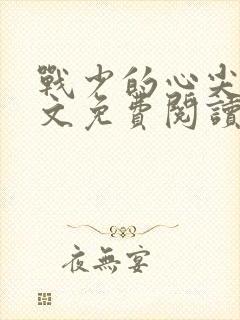 戰少的心尖
文免費閱讀
夜無宴